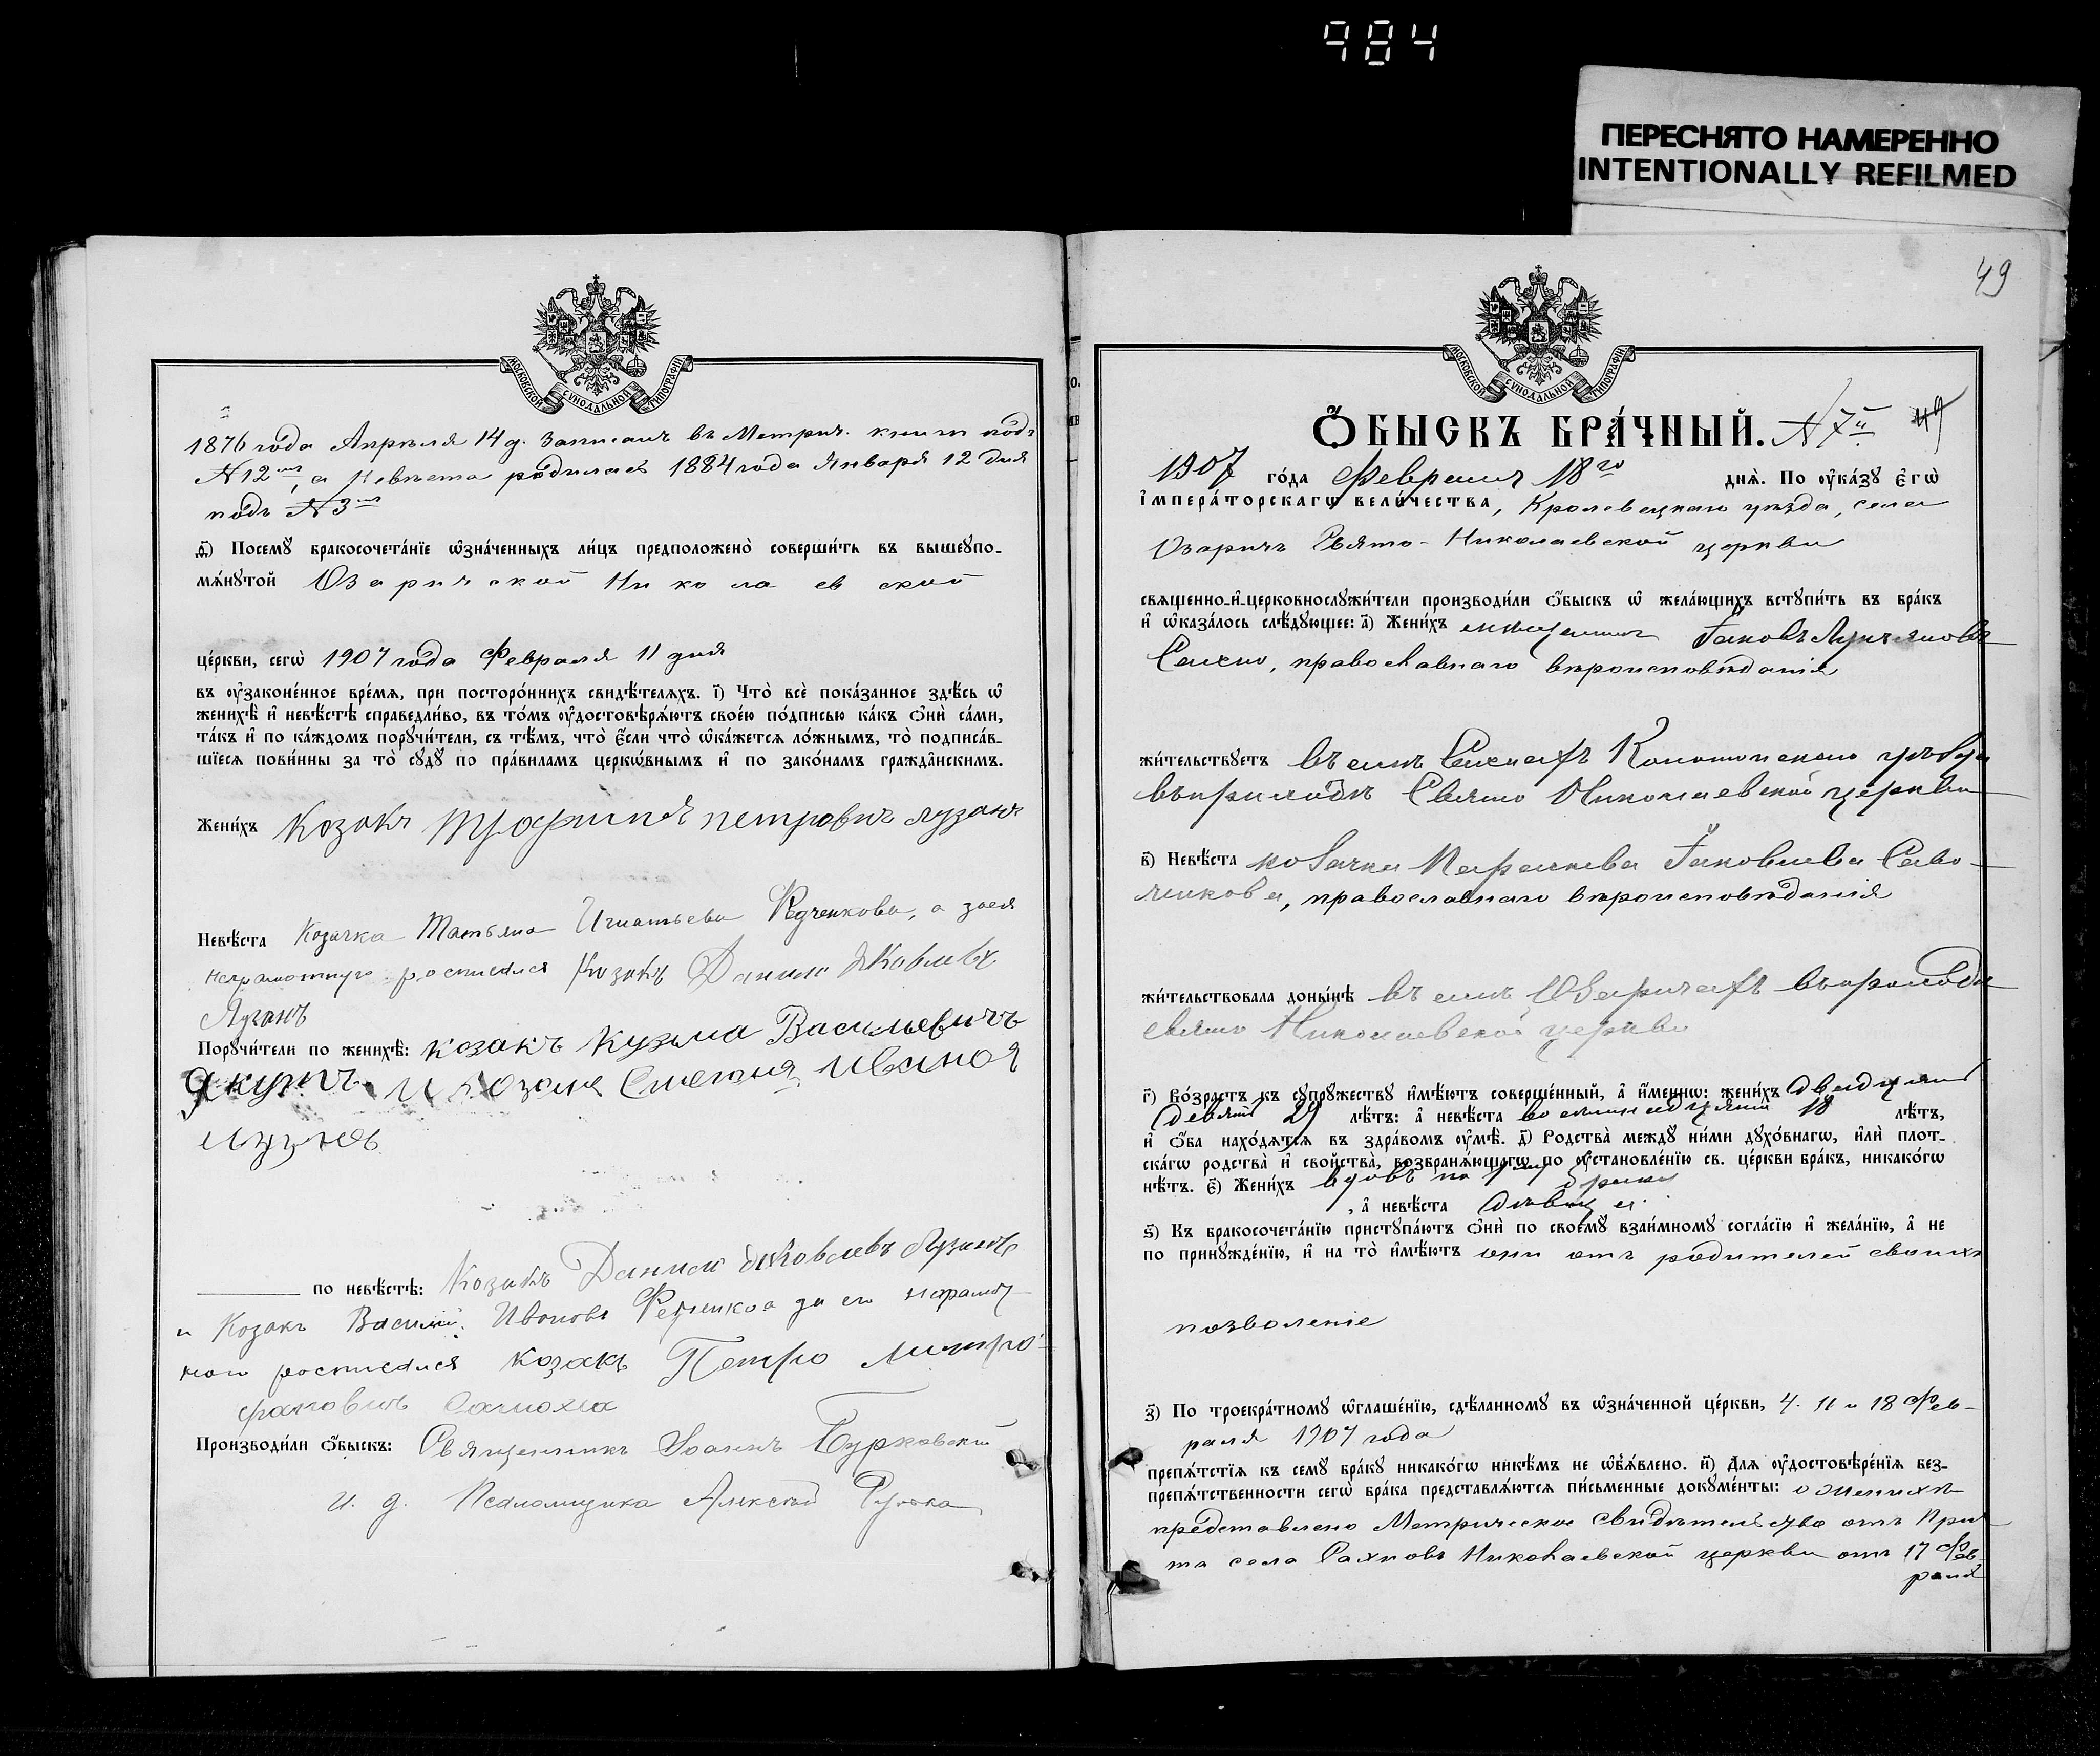 984
ПЕРЕСНЯТО НАМЕРЕННО
INTENTIONALLY REFILMED
МОСКОВСКОЙ СѴНОДАЛЬНОЙ ТИПОГРАФІИ
1876 года Апрѣля 14 д. записанъ въ Метрич. книгѣ подъ
N 12мъ, а Невѣста родилась 1884 года Января 12 дня
подъ N 3мъ
ѳ҃) Посемꙋ̀ бракосочета́нїе ѡ҆зна́ченныхъ ли́цъ предположено̀ соверши́ть въ вышеꙋпо-
мѧ́нꙋтой Озаричской Николаевской
це́ркви, сегѡ̀ 1907 года Февраля 11 дня
въ ᲂу҆зако́ненное вре́мѧ, при посторо́ннихъ свидѣ́телѧхъ. і҃) Что̀ всѐ пока́занное здѣ́сь ѡ҆
женихѣ̀ и҆ невѣ́стѣ справедли́во, въ то́мъ ᲂу҆достовѣрѧ́ютъ свое́ю по́дписью ка́къ ѻ҆нѝ са́ми,
та́къ и҆ по ка́ждомъ порꙋчи́тели, съ тѣ́мъ, что̀ є҆́сли что̀ ѡ҆ка́жетсѧ ло́жнымъ, то̀ подписа́в-
шїесѧ пови́нны за то̀ сꙋдꙋ̀ по пра́виламъ церкѡ́внымъ и҆ по зако́намъ гражда̑нскимъ.
Жени́хъ Козакъ Трофимъ петровичъ лузанъ
Невѣ́ста Козачка Татьяна Игнатьева Редченкова, а за ея
неграмотную росписался Козакъ Данило Яковлевъ
Лузанъ
Порꙋчи́тели по женихѣ̀: козакъ Кузьма Васильевичъ
Якутъ и козакъ Стеганъ Иванов
лузанъ
по невѣ́стѣ: Козакъ Данило Яковлевъ Лузанъ
и Козакъ Василій Ивановъ за его неграмот-
ного росписался козакъ Петро Митро-
фановичъ
Производи́ли ѻ҆́быскъ: Священникъ Іоаннъ Бурковскій
и. д. Псаломщика Алексѣй
49
МОСКОВСКОЙ СѴНОДАЛЬНОЙ ТИПОГРАФІИ
Ѻ҆́БЫСКЪ БРА́ЧНЫЙ. N 7й 49
1907 го́да Февраля 18го днѧ̀. По ᲂу҆ка́зꙋ є҆гѡ̀
і҆мпера́торскагѡ вели́чества, Кролевецкаго уѣзда, села
Озаричъ Свято-Николаевской церкви
свѧще́нно-и҆-церковнослꙋжи́тели производи́ли ѻ҆́быскъ ѡ҆ жела́ющихъ встꙋпи́ть въ бра́къ
и҆ ѡ҆каза́лось слѣ́дꙋющее: а҃) Жени́хъ мѣщанинъ Іаковъ Лукьяновъ
Сахно, православнаго вѣроисповѣданія
жи́тельствꙋетъ въ селѣ Сахнахъ Конотопскаго уѣзда
въ приходѣ Свято Николаевской церкви
в҃) Невѣ́ста козачка Параскева Іаковлева Само-
, православнаго вѣроисповѣданія
жи́тельствовала доны́нѣ въ селѣ Озаричахъ въ приходѣ
свято Николаевской церкви
г҃) Во́зрастъ къ сꙋпрꙋ́жествꙋ и҆мѣ́ютъ соверше́нный, а҆ и҆́меннѡ: жени́хъ двадцати
девяти 29 лѣ́тъ: а҆ невѣ́ста восемнадцяти 18 лѣ́тъ,
и҆ ѻ҆́ба нахо́дѧтсѧ въ здра́вомъ ᲂу҆мѣ̀. д҃) Родства̀ междꙋ̀ ни́ми дꙋхо́внагѡ, и҆лѝ плот-
ска́гѡ родства̀ и҆ сво́йства̀, возбранѧ́ющагѡ по ᲂу҆становле́нїю св. це́ркви бра́къ, никако́гѡ
нѣ́тъ. є҃) Жени́хъ вдовъ по 1му браку
, а҆ невѣ́ста дѣвица.
ѕ҃) Къ бракосочета́нїю пристꙋпа́ютъ ѻ҆нѝ по своемꙋ̀ взаи́мномꙋ согла́сїю и҆ жела́нїю, а҆ не
по принꙋжде́нїю, и҆ на то̀ и҆мѣ́ютъ они отъ родителей своихъ
позволеніе
з҃) По троекра́тномꙋ ѡ҆глаше́нїю, сдѣ́ланномꙋ въ ѡ҆зна́ченной це́ркви, 4. 11 и 18 Фев-
раля 1907 года
препѧ́тствїѧ къ семꙋ̀ бра́кꙋ никако́гѡ никѣ́мъ не ѡ҆бъѧ́влено. и҃) Длѧ ᲂу҆достовѣре́нїѧ без-
препѧ́тственности сегѡ̀ бра́ка представлѧ́ютсѧ пи́сьменные докꙋме́нты: о женихѣ
представлено Метрическое свидѣтельство отъ При-
та села Сахновъ Николаевской церкви отъ 17 Фев-
раля